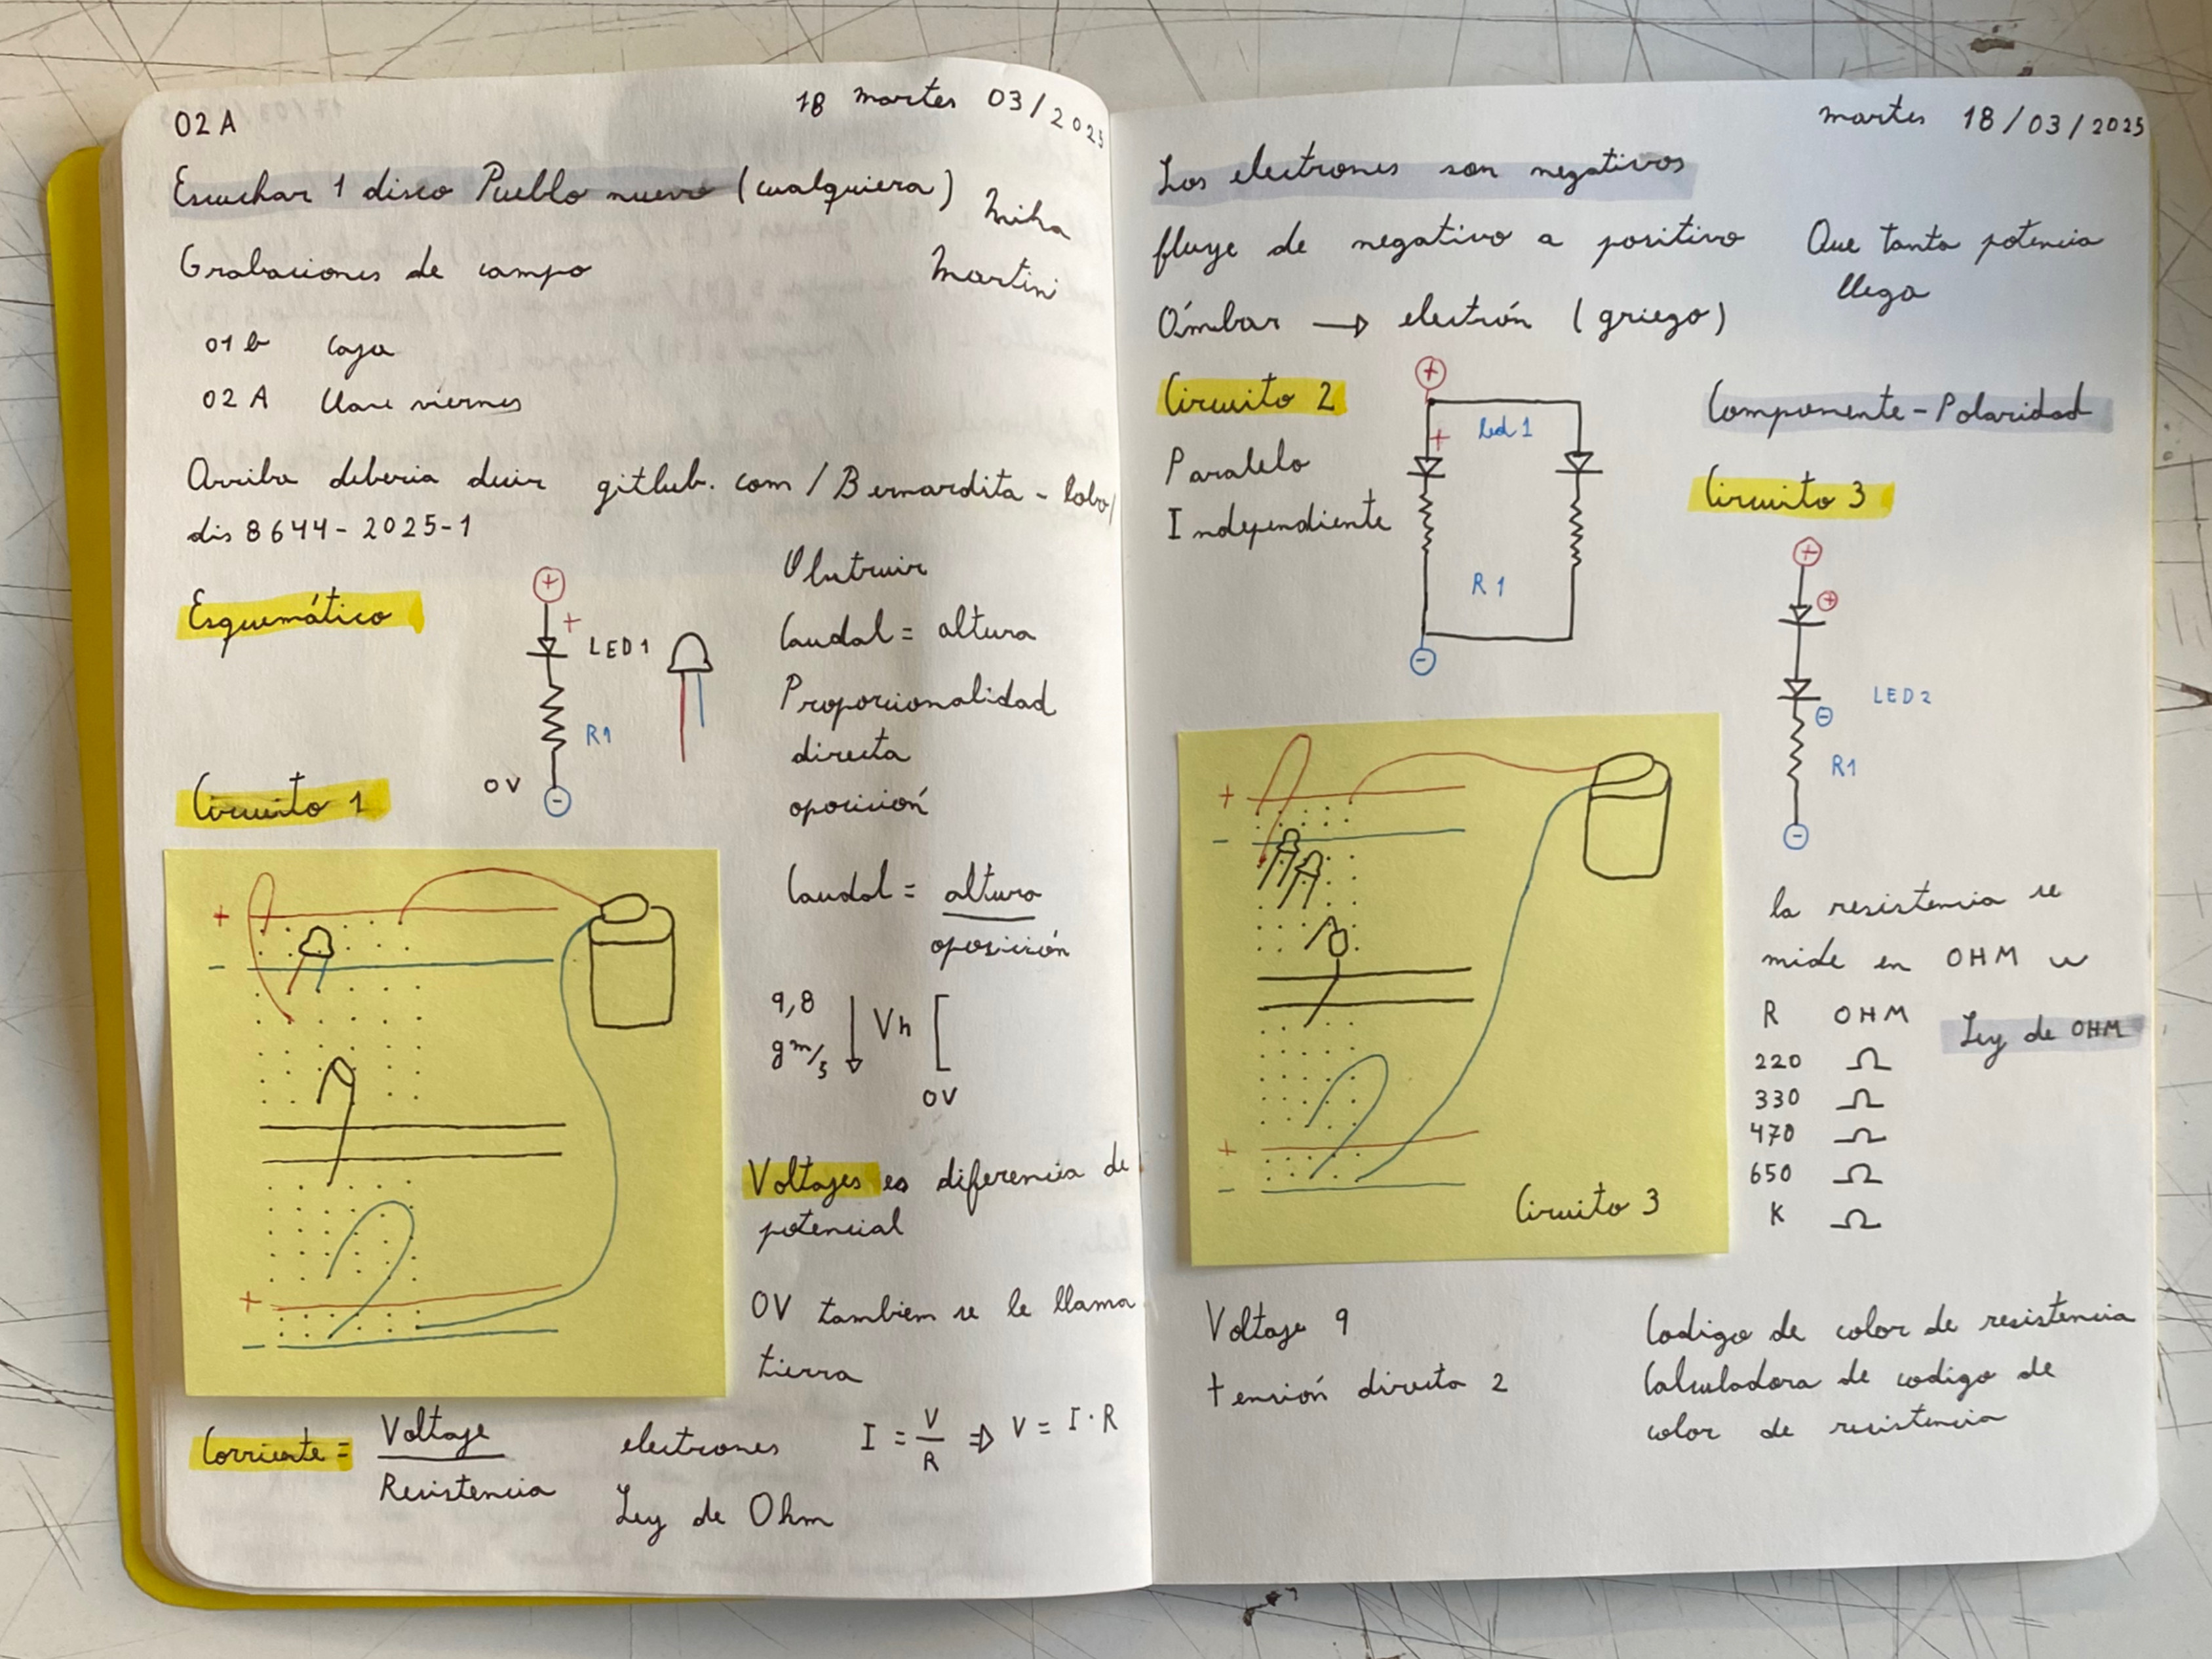 02 A
18 martes 03/2025
Escuchar 1 disco Pueblo nuevo (cualquiera)
Miha
Martini
Grabaciones de campo
01 b caja
02 A Clase viernes
Arriba deberia decir github.com/Bernardita-lobo/
dis8644-2025-1
Esquemático
+
+
LED1
R1
0V
-
Circuito 1
Obstruir
Caudal = altura
Proporcionalidad
directa
oposición
Caudal = altura
oposición
9,8
gm/s
Vh
0V
+
-
+
-
Voltajes es diferencia de
potencial
0V tambien se le llama
tierra
Corriente = Voltaje
Resistencia
electrones
Ley de Ohm
I = V/R ⇒ V = I·R
martes 18/03/2025
Los electrones son negativos
fluye de negativo a positivo
Que tanta potencia
llega
Ámbar → electrón (griego)
Circuito 2
Paralelo
Independiente
+
+
Led 1
R1
-
Componente - Polaridad
Circuito 3
+
+
LED2
-
R1
-
+
-
+
-
Circuito 3
la resistencia se
mide en OHM
R OHM
220 Ω
330 Ω
470 Ω
650 Ω
K Ω
Ley de OHM
Voltaje 9
tensión directa 2
Codigo de color de resistencia
Calculadora de codigo de
color de resistencia